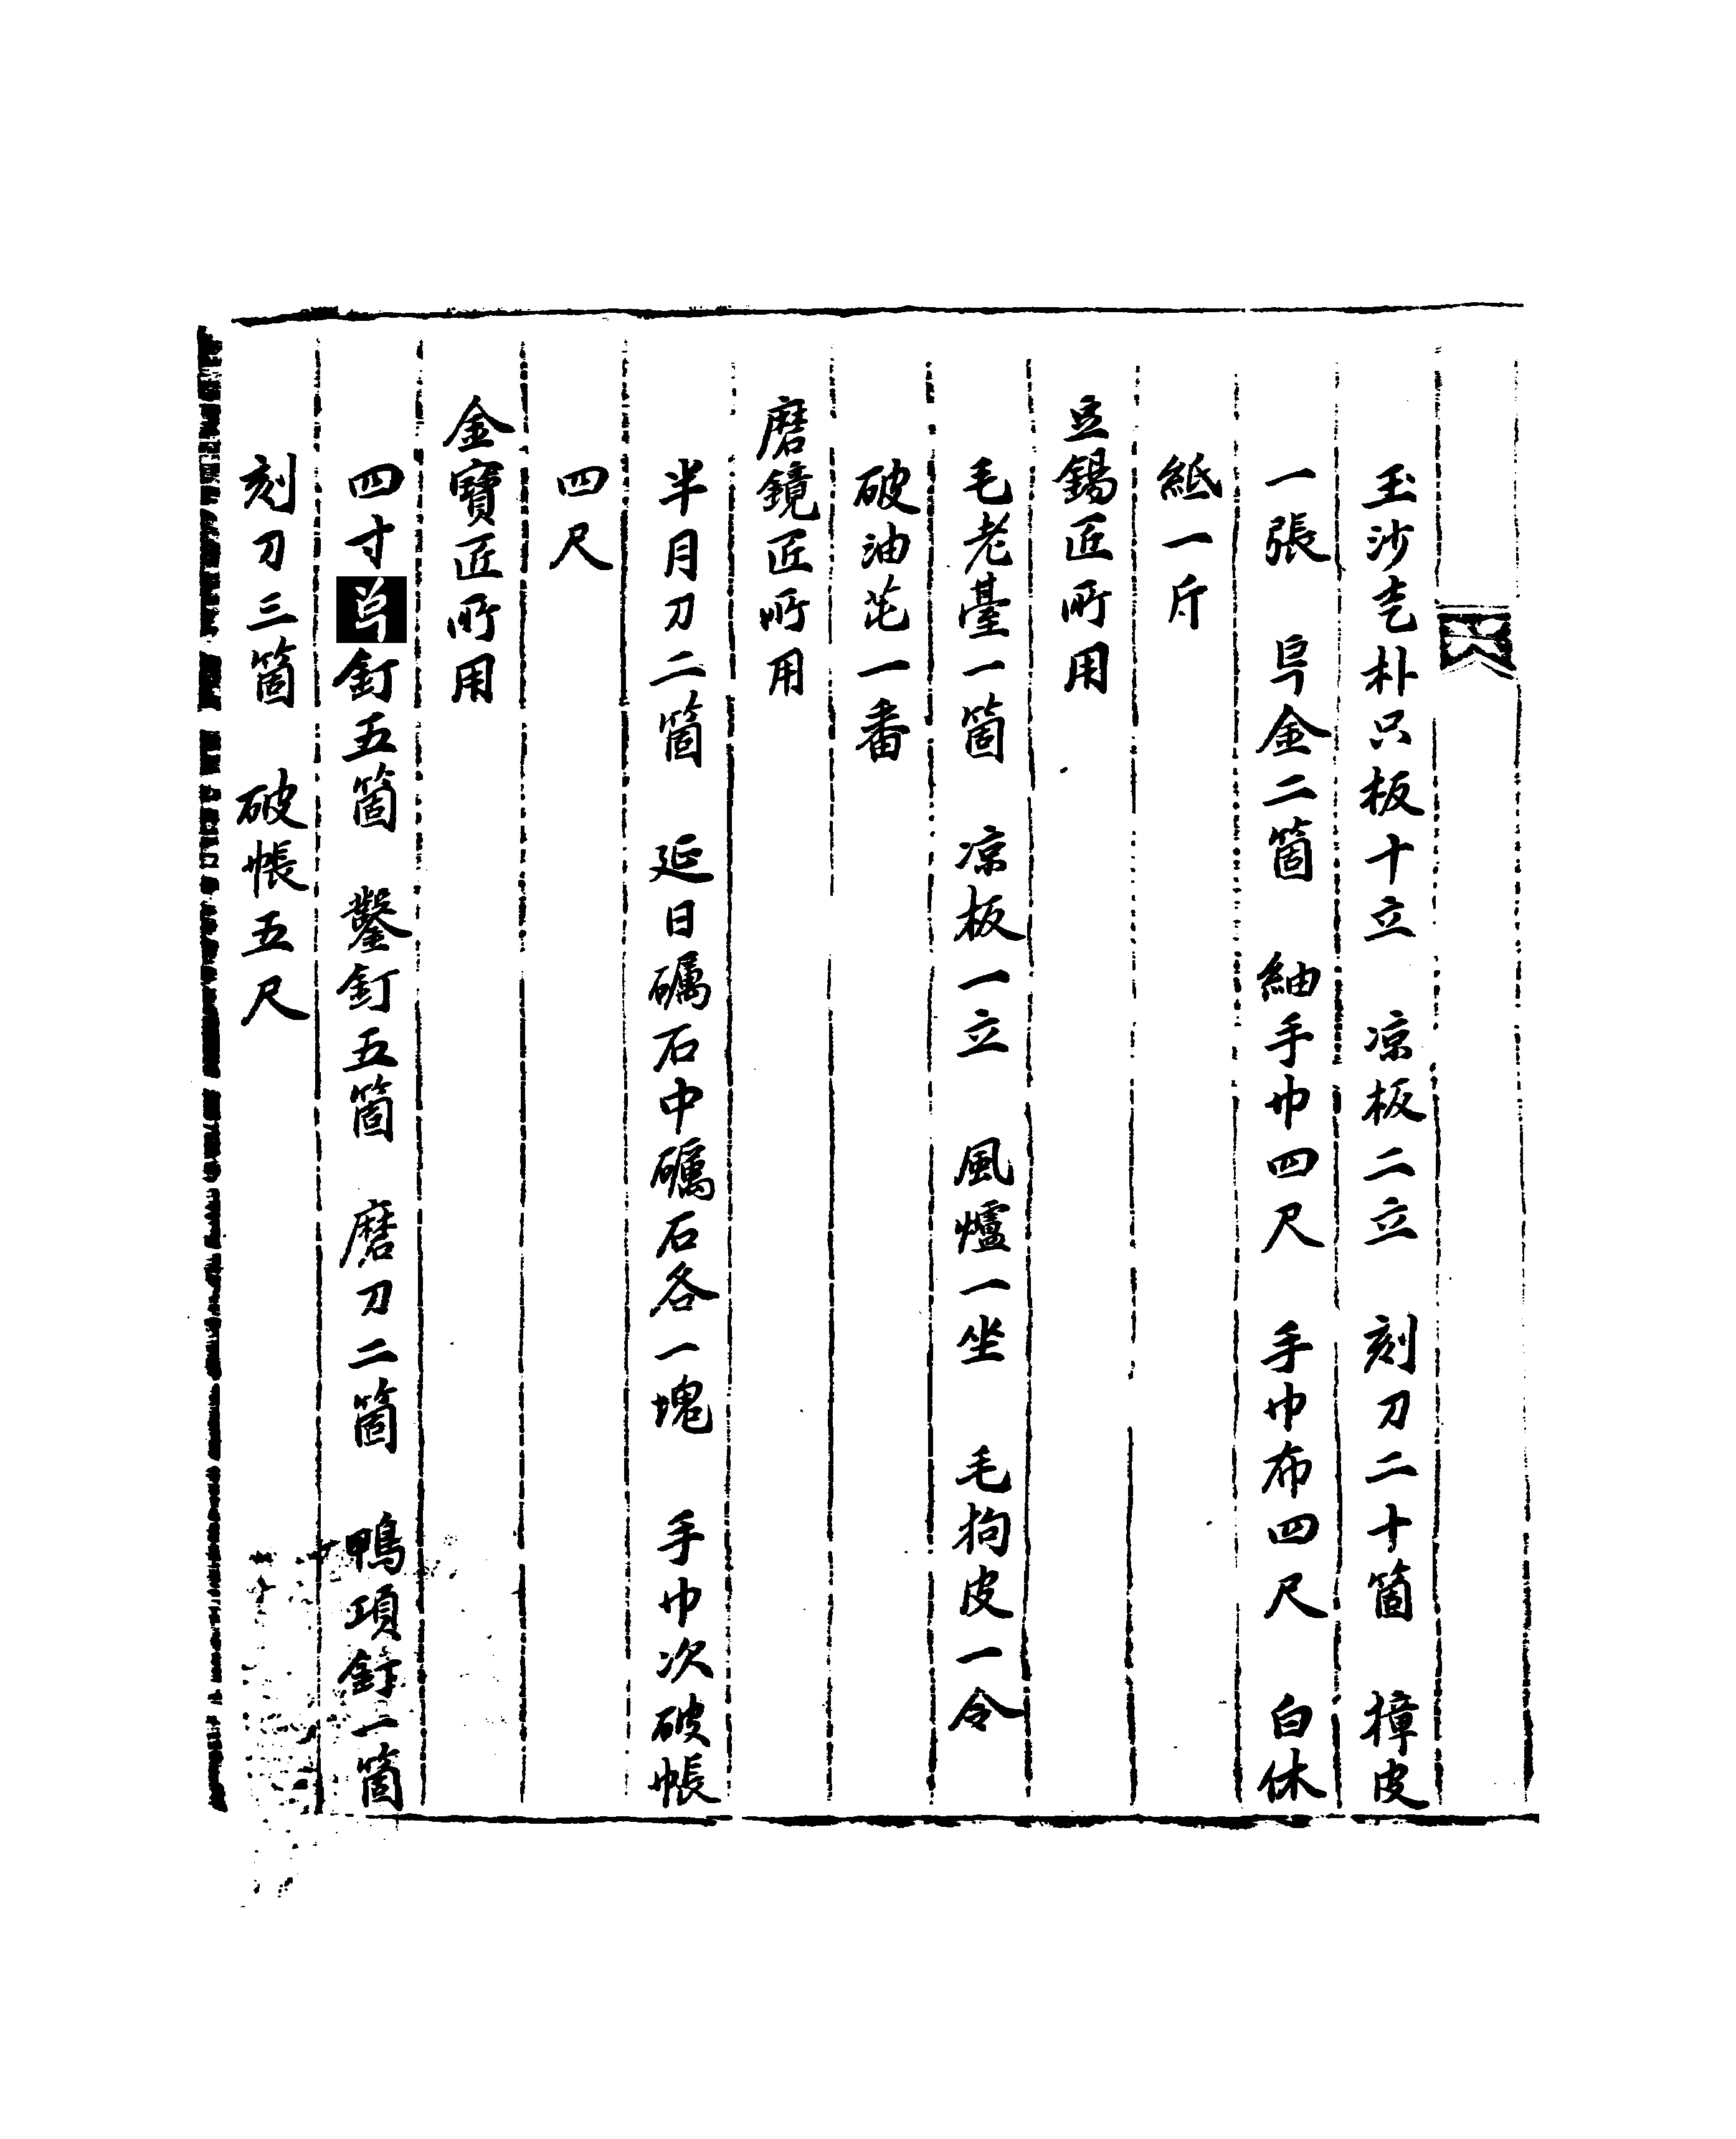 玉沙乭朴只板十立 凉板二立 刻刀二十箇 獐皮
一張 阜金二箇 紬手巾四尺 手巾布四尺 白休
紙一斤
豆錫匠所用
毛老臺一箇 凉板一立 風爐一坐 毛狗皮一令
破油芚一番
磨鏡匠所用
半月刀二箇 延日礪石中礪石各一塊 手巾次破帳
四尺
金寶匠所用
四寸釘五箇 鑿釘五箇 磨刀二箇 鴨項釘一箇
刻刀三箇 破帳五尺